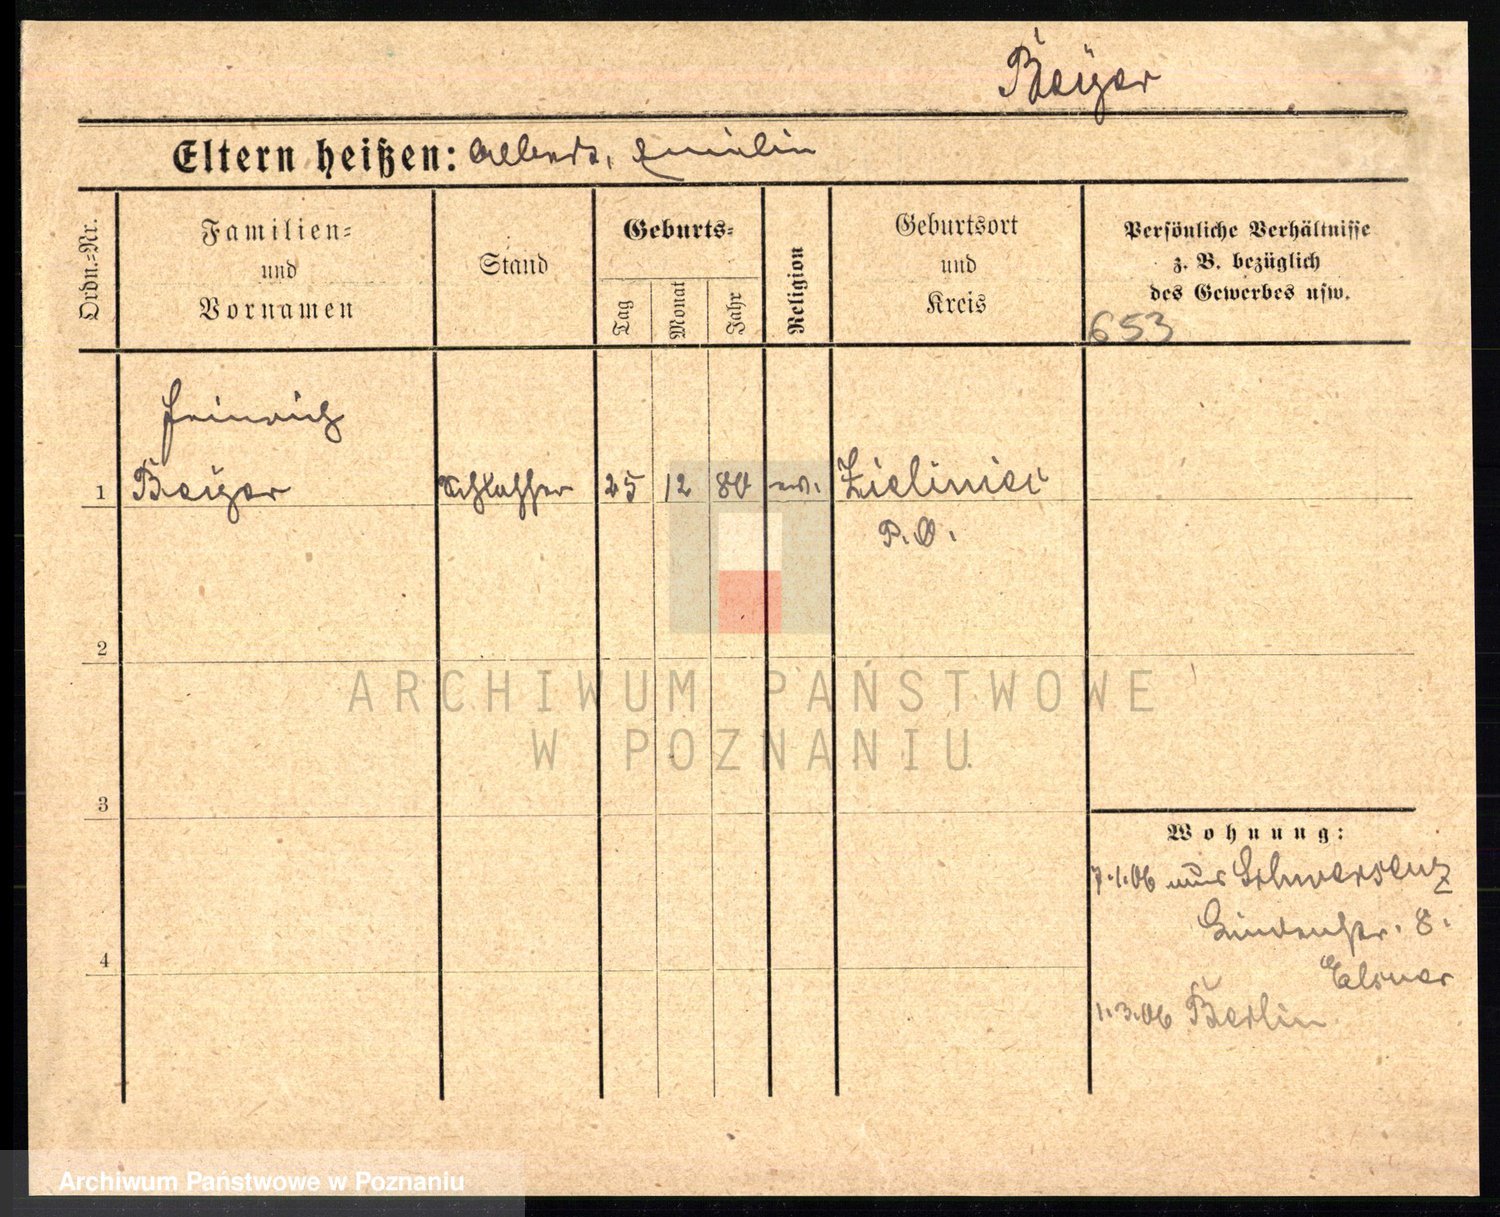 Beÿer
Eltern heißen: Albert, Emilie
Ordn.-Nr.
Familien-
und
Vornamen
Stand
Geburts-
Tag
Monat
Jahr
Religion
Geburtsort
und
Kreis
Persönliche Verhältnisse
z. B. bezüglich
des Gewerbes usw.
653
Heinrich
1 Beÿer Schlosser 25 12 80 ev. Zieliniec
P. O.
2
ARCHIWUM PAŃSTWOWE
W POZNANIU
3
Wohnung:
7.1.06 aus Schwersenz
Lindenstr. 8.
4
Elsner
1.3.06 Berlin
Archiwum Państwowe w Poznaniu